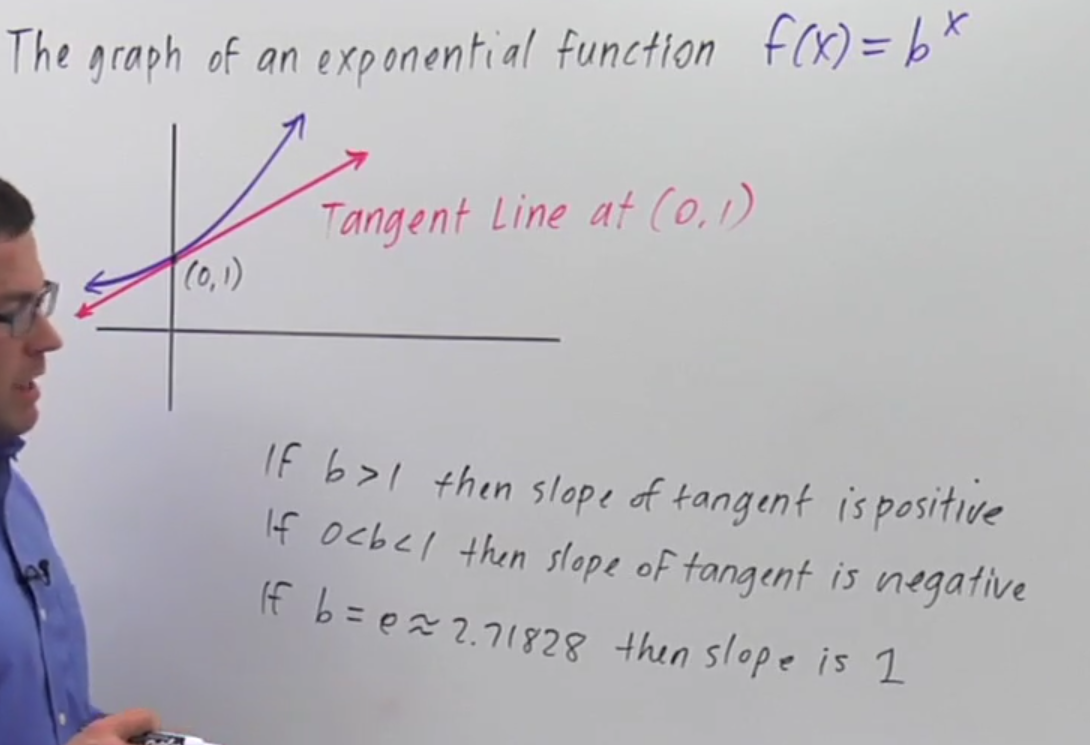 The graph of an exponential function f(x) = bˣ
Tangent Line at (0,1)
(0,1)
If b>1 then slope of tangent is positive
If 0<b<1 then slope of tangent is negative
If b = e ≈ 2.71828 then slope is 1